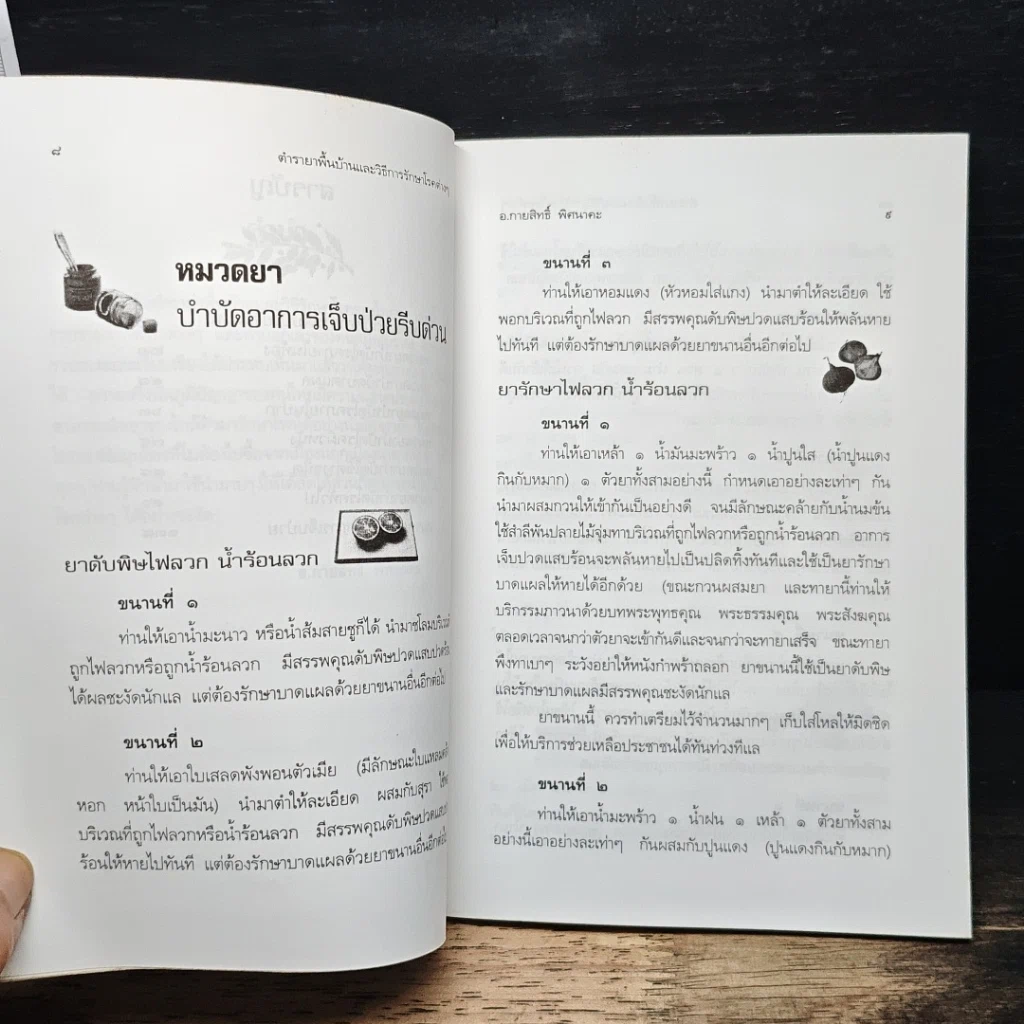 ๘
ตำรายาพื้นบ้านและวิธีการรักษาโรคต่างๆ
หมวดยา
บำบัดอาการเจ็บป่วยรีบด่วน
ยาดับพิษไฟลวก น้ำร้อนลวก
ขนานที่ ๑
ท่านให้เอาน้ำมะนาว หรือน้ำส้มสายชูก็ได้ นำมาชโลมบริเวณที่
ถูกไฟลวกหรือถูกน้ำร้อนลวก มีสรรพคุณดับพิษปวดแสบปวดร้อน
ได้ผลชะงัดนักแล แต่ต้องรักษาบาดแผลด้วยยาขนานอื่นอีกต่อไป
ขนานที่ ๒
ท่านให้เอาใบเสลดพังพอนตัวเมีย (มีลักษณะใบแหลมคล้าย
หอก หน้าใบเป็นมัน) นำมาตำให้ละเอียด ผสมกับสุรา
บริเวณที่ถูกไฟลวกหรือน้ำร้อนลวก มีสรรพคุณดับพิษปวดแสบ
ร้อนให้หายไปทันที แต่ต้องรักษาบาดแผลด้วยยาขนานอื่นอีกต่อไป
อ.กายสิทธิ์ พิศนาคะ
๙
ขนานที่ ๓
ท่านให้เอาหอมแดง (หัวหอมใส่แกง) นำมาตำให้ละเอียด ใช้
พอกบริเวณที่ถูกไฟลวก มีสรรพคุณดับพิษปวดแสบร้อนให้พลันหาย
ไปทันที แต่ต้องรักษาบาดแผลด้วยยาขนานอื่นอีกต่อไป
ยารักษาไฟลวก น้ำร้อนลวก
ขนานที่ ๑
ท่านให้เอาเหล้า ๑ น้ำมันมะพร้าว ๑ น้ำปูนใส (น้ำปูนแดง
กินกับหมาก) ๑ ตัวยาทั้งสามอย่างนี้ กำหนดเอาอย่างละเท่าๆ กัน
นำมาผสมกวนให้เข้ากันเป็นอย่างดี จนมีลักษณะคล้ายกับน้ำนมข้น
ใช้สำลีพันปลายไม้จุ่มทาบริเวณที่ถูกไฟลวกหรือถูกน้ำร้อนลวก อาการ
เจ็บปวดแสบร้อนจะพลันหายไปเป็นปลิดทิ้งทันทีและใช้เป็นยารักษา
บาดแผลให้หายได้อีกด้วย (ขณะกวนผสมยา และทายานี้ท่านให้
บริกรรมภาวนาด้วยบทพระพุทธคุณ พระธรรมคุณ พระสังฆคุณ
ตลอดเวลาจนกว่าตัวยาจะเข้ากันดีและจนกว่าจะทายาเสร็จ ขณะทายา
พึงทาเบาๆ ระวังอย่าให้หนังกำพร้าถลอก ยาขนานนี้ใช้เป็นยาดับพิษ
และรักษาบาดแผลมีสรรพคุณชะงัดนักแล
ยาขนานนี้ ควรทำเตรียมไว้จำนวนมากๆ เก็บใส่โหลให้มิดชิด
เพื่อให้บริการช่วยเหลือประชาชนได้ทันท่วงทีแล
ขนานที่ ๒
ท่านให้เอาน้ำมะพร้าว ๑ น้ำฝน ๑ เหล้า ๑ ตัวยาทั้งสาม
อย่างนี้เอาอย่างละเท่าๆ กันผสมกับปูนแดง (ปูนแดงกินกับหมาก)